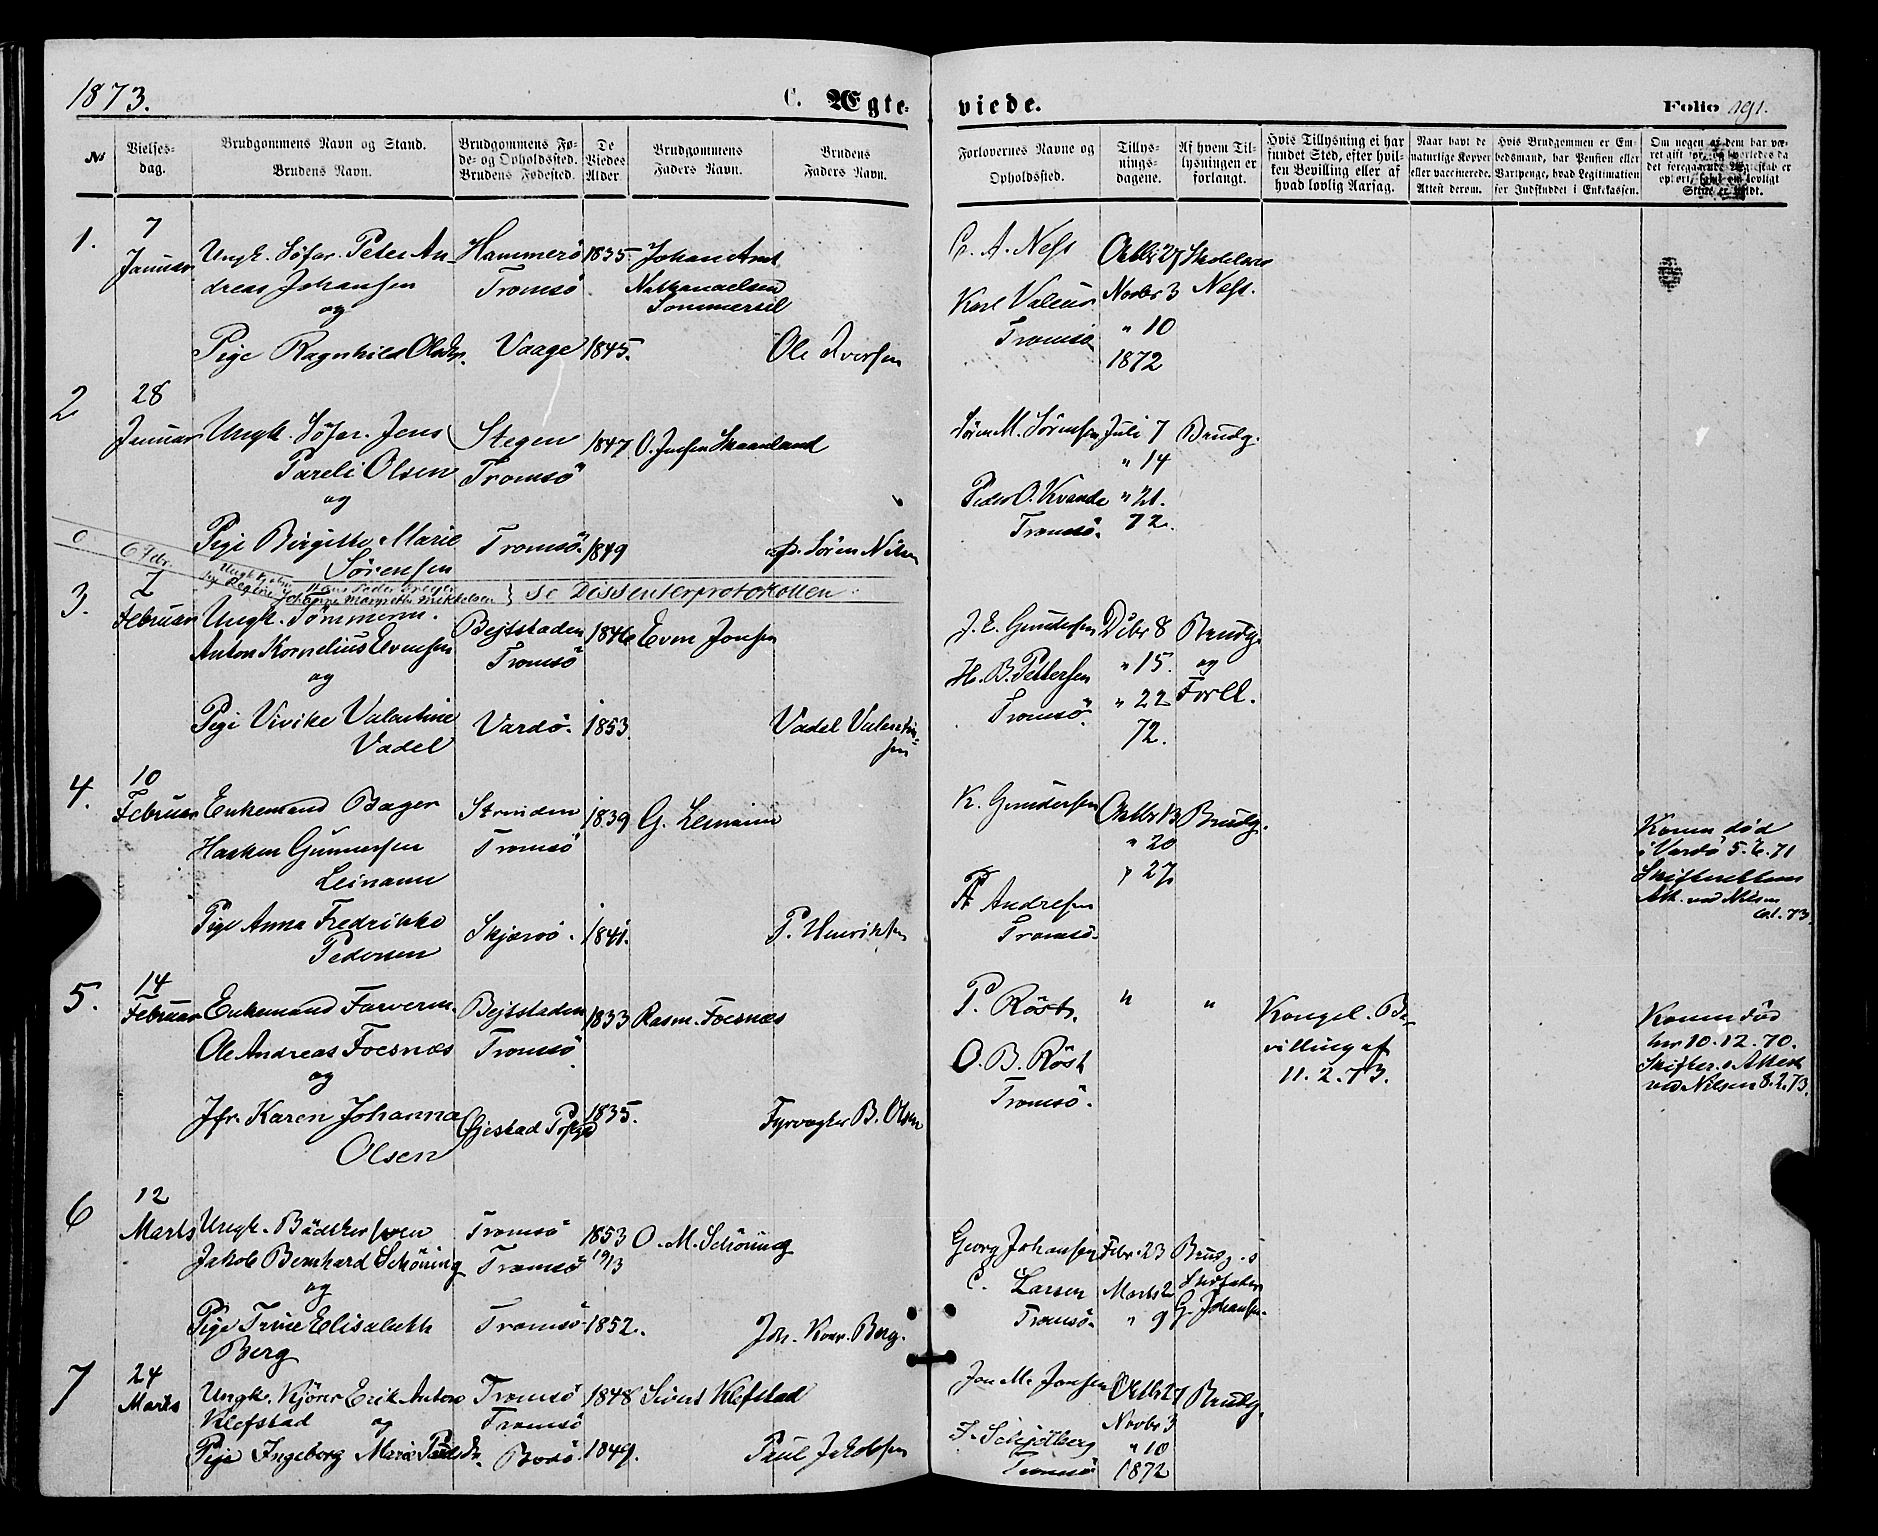 1873.
C. Ægte-
viede.
Folio 191.
No
Vielses-
dag.
Brudgommens Navn og Stand.
Brudens Navn.
Brudgommens Fø-
de- og Opholdssted.
Brudens Fødested.
De
Viedes
Alder.
Brudgommens
Faders Navn.
Brudens
Faders Navn.
Forlovernes Navne og
Opholdssted.
Tillys-
nings-
dagene.
Af hvem Til-
lysningen er
forlangt.
Hvis Tillysning ei har
fundet Sted, efter hvil-
ken Bevilling eller af
hvad lovlig Aarsag.
Naar havt de
naturlige Kopper
eller vaccinerede.
Attest derom.
Hvis Brudgommen er Em-
bedsmand, har Pension eller
Vartpenge, hvad Legitimation
for Indskuddet i Enkekassen.
Om nogen af dem har væ-
ret gift før, og hvorledes da
det foregaaende Ægteskab er
ophørt, samt om lovligt
Skifte er holdt.
1.
7
Januar
Ungk. Søfar. Peter An-
dreas Johansen
og
Pige Ragnhild Olsdtr.
Hammerö
Tromsö
Vaage
1835.
1845.
Johan Arnt
Nathanaelsen
Sommersel
Ole Iversen
C. A. Næss
Karl Valeur
Tromsö
Octbr 27
Novbr 3
" 10
1872
Næss.
2
28
Januar
Ungk. Søfar. Jens
Pareli Olsen
og
Pige Birgitte Marie
Sørensen
Stegen
Tromsö
Tromsö
1847
1849
O. Jensen Skaanland
Søren Nilsen
Sören M. Sörensen
Peder O. Kvande
Tromsö.
Juli 7
" 14
" 21.
72.
Brudg.
0
6 Febr.
Johanne Margrethe Mikkelsen } se Dissenterprotokollen.
3.
7
Februar
Ungk. Tömmerm.
Anton Kornelius Evensen
og
Pige Vivike Valentine
Vadel
Bejtstaden
Tromsö
Vardö.
1846
1853
Even Jonsen
Vadel Valentin-
sen
J. E. Gundersen
H. B. Pettersen
Tromsö.
Dcbr 8
" 15
" 22
72.
Brudg.
og
Forll.
4.
10
Februar
Enkemand Bager
Haaken Gunnersen
Leinann
Pige Anna Fredrikke
Pedersen
Strinden
Tromsö
Skjærvö.
1839
1841.
G. Leinann
P. Henriksen
K. Gundersen
P. Andresen
Tromsö.
Octbr 13
" 20
" 27
Brudg.
Konen död
i Vardö 5.6.71
Skifterettens
Att. ved Nilsen
5.
14
Februar
Enkemand Farverm.
Ole Andreas Foesnæs
og
Jfr. Karen Johanna
Olsen
Bejtstaden
Tromsö
Gjestad
1833
1835.
Rasm. Foesnæs
Fyrvogter B. Olsen
P. Röst.
O. B. Röst
Tromsö.
"
"
Kongel. Be-
villing af
11. 2. 73.
Konen död
her 10.12.70.
Skifter. Attest
ved Nilsen 8.2.73.
6
12
Marts
Ungk. Bödkersven
Jakob Bernhard Schöning
og
Pige Trine Elisabeth
Berg
Tromsö
Tromsö
Tromsö
1853
19/13
1852.
O. M. Schöning
Joh. Konr. Berg.
Georg Johansen
C. Larsen
Tromsö.
Febr. 23
Marts 2
" 9
Brudg.s
Stedfader
G. Johansen.
7
24
Marts
Ungk. Kjörer Erik Anton
Klefstad og
Pige Ingeborg Marie Paulsdtr.
Tromsö
Tromsö
Bodö
1848
1849.
Sivert Klefstad
Paul Jakobsen
Jon M. Jonsen
F. Schjölberg
Tromsö
Octbr 27
Novbr 3
" 10
1872
Brudg.